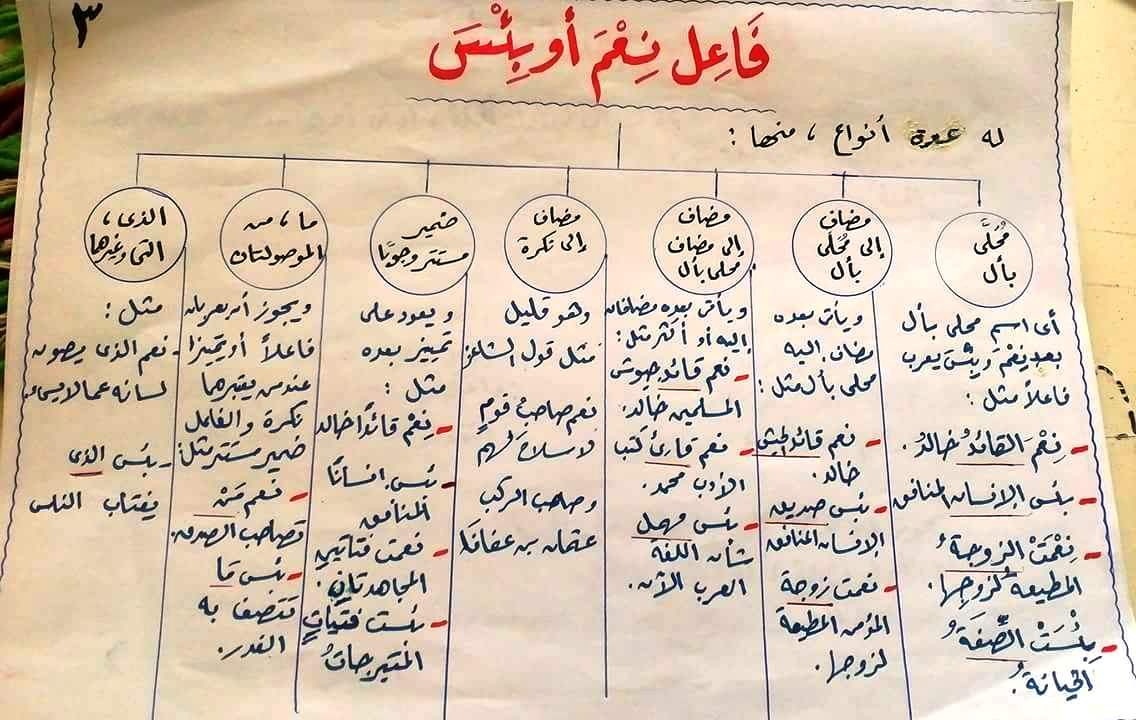 ٣
فَاعِل نِعْمَ أو بِئْسَ
له عدة أنواع ، منها :
مُحَلَّى
بأل
أى اسم محلى بأل
بعد نِعْمَ وبِئْسَ يعرب
فاعلاً مثل :
- نِعْمَ القائدُ خالدُ.
- بئس الإنسان المنافق
- نِعْمَتْ الزوجةُ
المطيعة لزوجِها.
- بِئْسَتْ الصِّفَةُ
الخيانةُ.
مضاف
إلى مُحلى
بأل
ويأتى بعده
مضاف إليه
محلى بأل مثل :
- نعم قائد الجيش
خالد.
- بئس صديق
الإنسان المنافق
- نعمت زوجة
المؤمن المطيعة
لزوجها.
مضاف
إلى مضاف
محلى بأل
ويأتى بعده مضافان
إليه أو أكثر مثل :
- نعم قائد جيوش
المسلمين خالد.
- نعم قارئ كتب
الأدب محمد.
- بئس مهمل
شأن اللغة
العرب الآن.
مضاف
إلى نكرة
وهو قليل
مثل قول الشاعر
نعم صاحبُ قومٍ
لا سلاح لهم
وصاحب الركب
عثمان بن عفانا
ضمير
مستتر وجوبًا
ويعود على
تمييز بعده
مثل :
- نِعْم قائدًا خالد
- بئس إنسانًا
المنافق
- نعمت فتاتين
المجاهدتان.
- بئست فتياتٍ
المتبرجاتُ
ما ، من
الموصولتان
ويجوز أن يعربان
فاعلاً أو تمييزا
عند من يعتبرهما
نكرة والفاعل
ضمير مستتر مثل :
- نعم مَنْ
تصاحب الصدوق.
- بئس مَا
تتصف به
الغدر.
الذى ،
التى وغيرها
مثل :
- نعم الذى يصون
لسانه عما لا يسيء.
- بئس الذى
يغتاب الناس